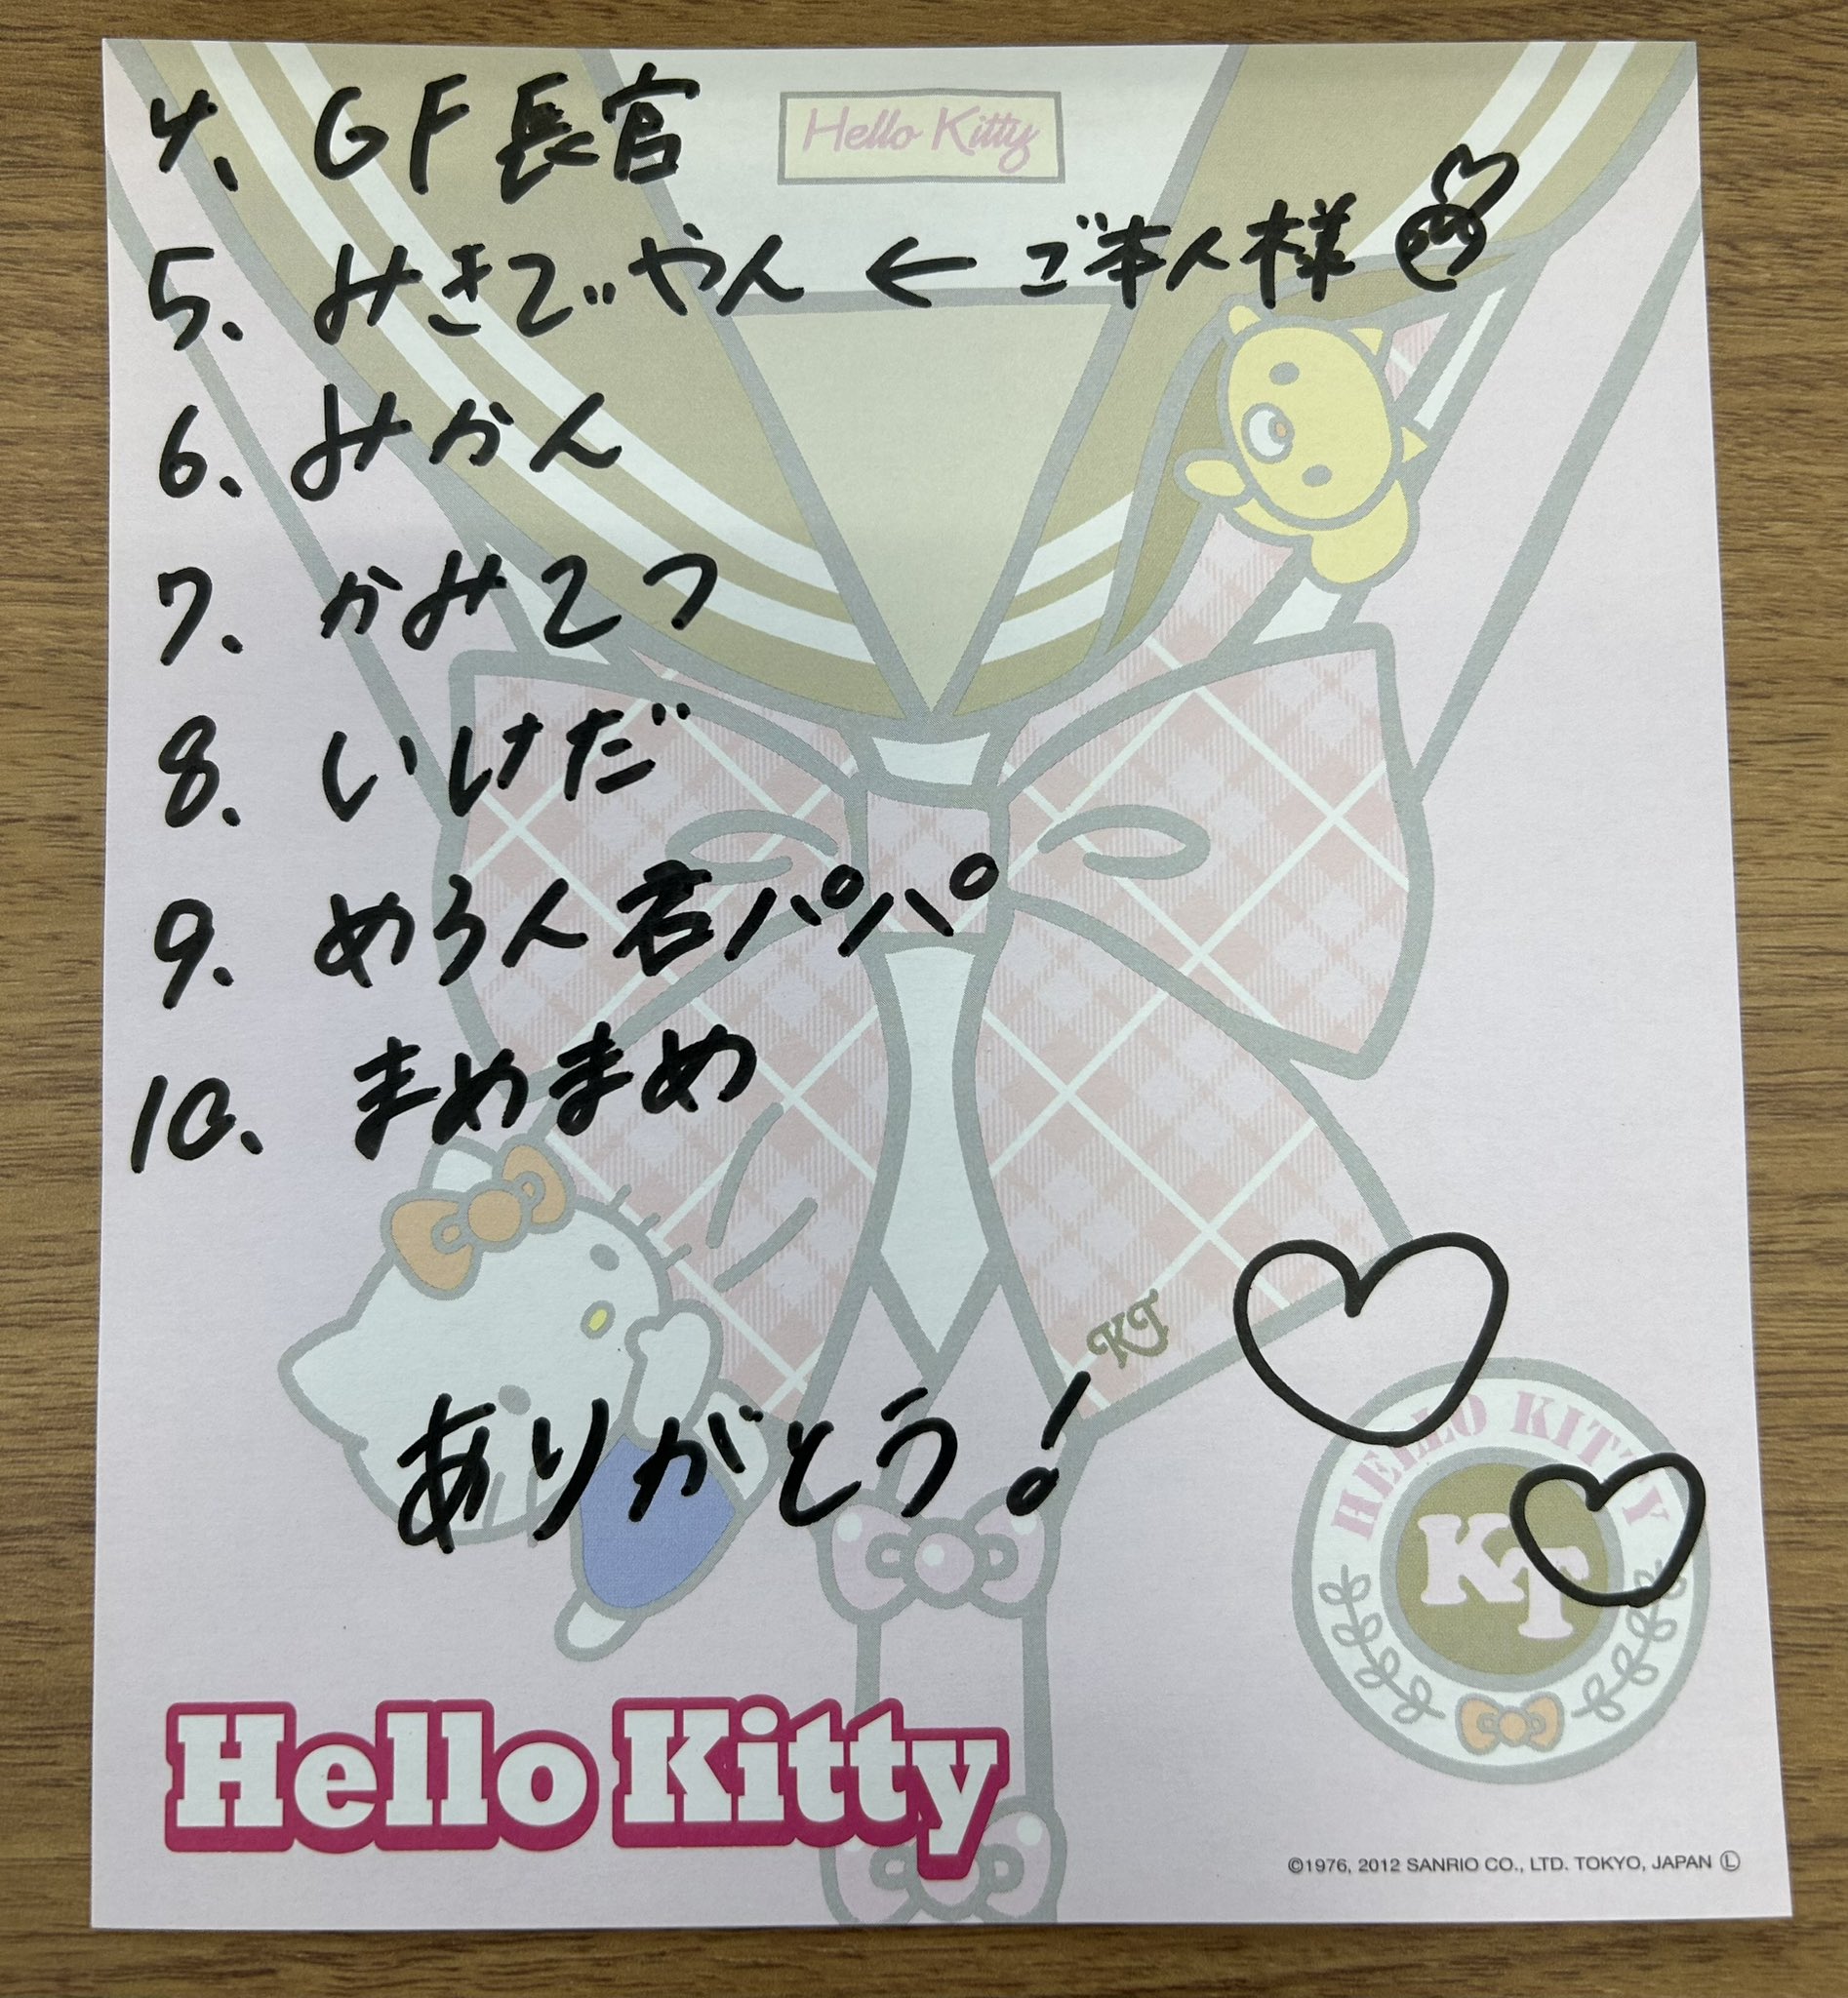 4. GF長官
Hello Kitty
5. みきでやん ← ご本人様
6. みかん
7. かみてつ
8. いけだ
9. めろん君パパ
10. まめまめ
KT
ありがとう!
HELLO KITTY
KT
Hello Kitty
©1976, 2012 SANRIO CO., LTD. TOKYO, JAPAN Ⓛ